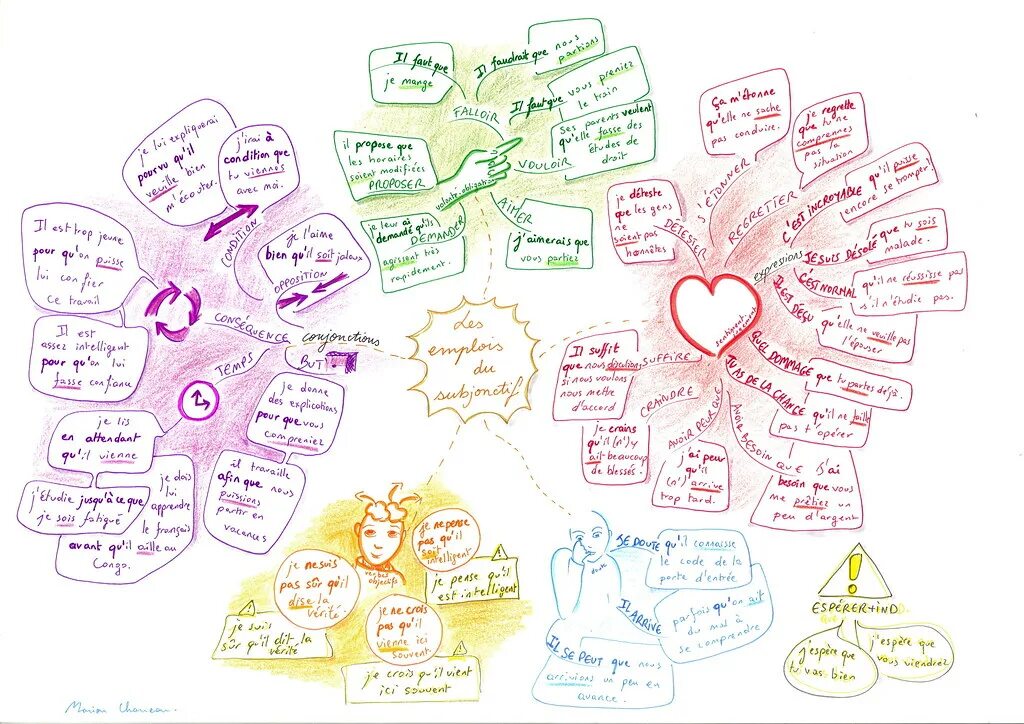 Les
emplois
du
subjonctif
volonté-obligation
FALLOIR
Il faut que
je mange
Il faudrait que nous
partions
Il faut que vous preniez
le train
VOULOIR
Ses parents veulent
qu'elle fasse des
études de
droit
AIMER
j'aimerais que
vous partiez
DEMANDER
je leur ai
demandé qu'ils
agissent très
rapidement.
il propose que
les horaires
soient modifiées
PROPOSER
sentiment
expressions
DÉTESTER
je déteste
que les gens
ne
soient pas
honnêtes
S'ÉTONNER
Ça m'étonne
qu'elle ne sache
pas conduire.
REGRETTER
je regrette
que tu ne
comprennes
pas la
situation
C'EST INCROYABLE qu'il puisse
encore se tromper!
JE SUIS DÉSOLÉ que tu sois
malade.
C'EST NORMAL qu'il ne réussisse pas
s'il n'étudie pas.
IL EST DÉÇU qu'elle ne veuille pas
l'épouser
QUEL DOMMAGE que tu partes déjà.
TU AS DE LA CHANCE qu'il ne faille
pas t'opérer
AVOIR BESOIN QUE
J'ai
besoin que vous
me prêtiez un
peu d'argent
AVOIR PEUR QUE
j'ai peur
qu'il
(n')arrive
trop tard.
CRAINDRE
je crains
qu'il (n')y
ait beaucoup
de blessés.
SUFFIRE
Il suffit
que nous discutions
si nous voulons
nous mettre
d'accord
conjonctions
OPPOSITION
je l'aime
bien qu'il soit jaloux
CONDITION
j'irai à
condition que
tu viennes
avec moi.
je lui expliquerai
pourvu qu'il
veuille bien
m'écouter.
CONSÉQUENCE
Il est trop jeune
pour qu'on puisse
lui confier
ce travail
Il est
assez intelligent
pour qu'on lui
fasse confiance
TEMPS
je lis
en attendant
qu'il vienne
j'étudie jusqu'à ce que
je sois fatigué
je dois
lui
apprendre
le français
avant qu'il aille au
Congo.
BUT
je donne
des explications
pour que vous
compreniez
il travaille
afin que nous
puissions
partir en
vacances
verbes
objectifs
je ne pense
pas qu'il
soit intelligent
je pense qu'il
est intelligent
je ne suis
pas sûr qu'il
dise la
vérité.
je suis
sûr qu'il dit la
vérité
je ne crois
pas qu'il
vienne ici
souvent.
je crois qu'il vient
ici souvent
doute
SE DOUTE qu'il connaisse
le code de la
porte d'entrée
IL ARRIVE parfois qu'on ait
du mal à
se comprendre
IL SE PEUT que nous
arrivions un peu en
avance.
!
ESPÉRER+IND
QUE
j'espère que
tu vas bien
j'espère que
vous viendrez